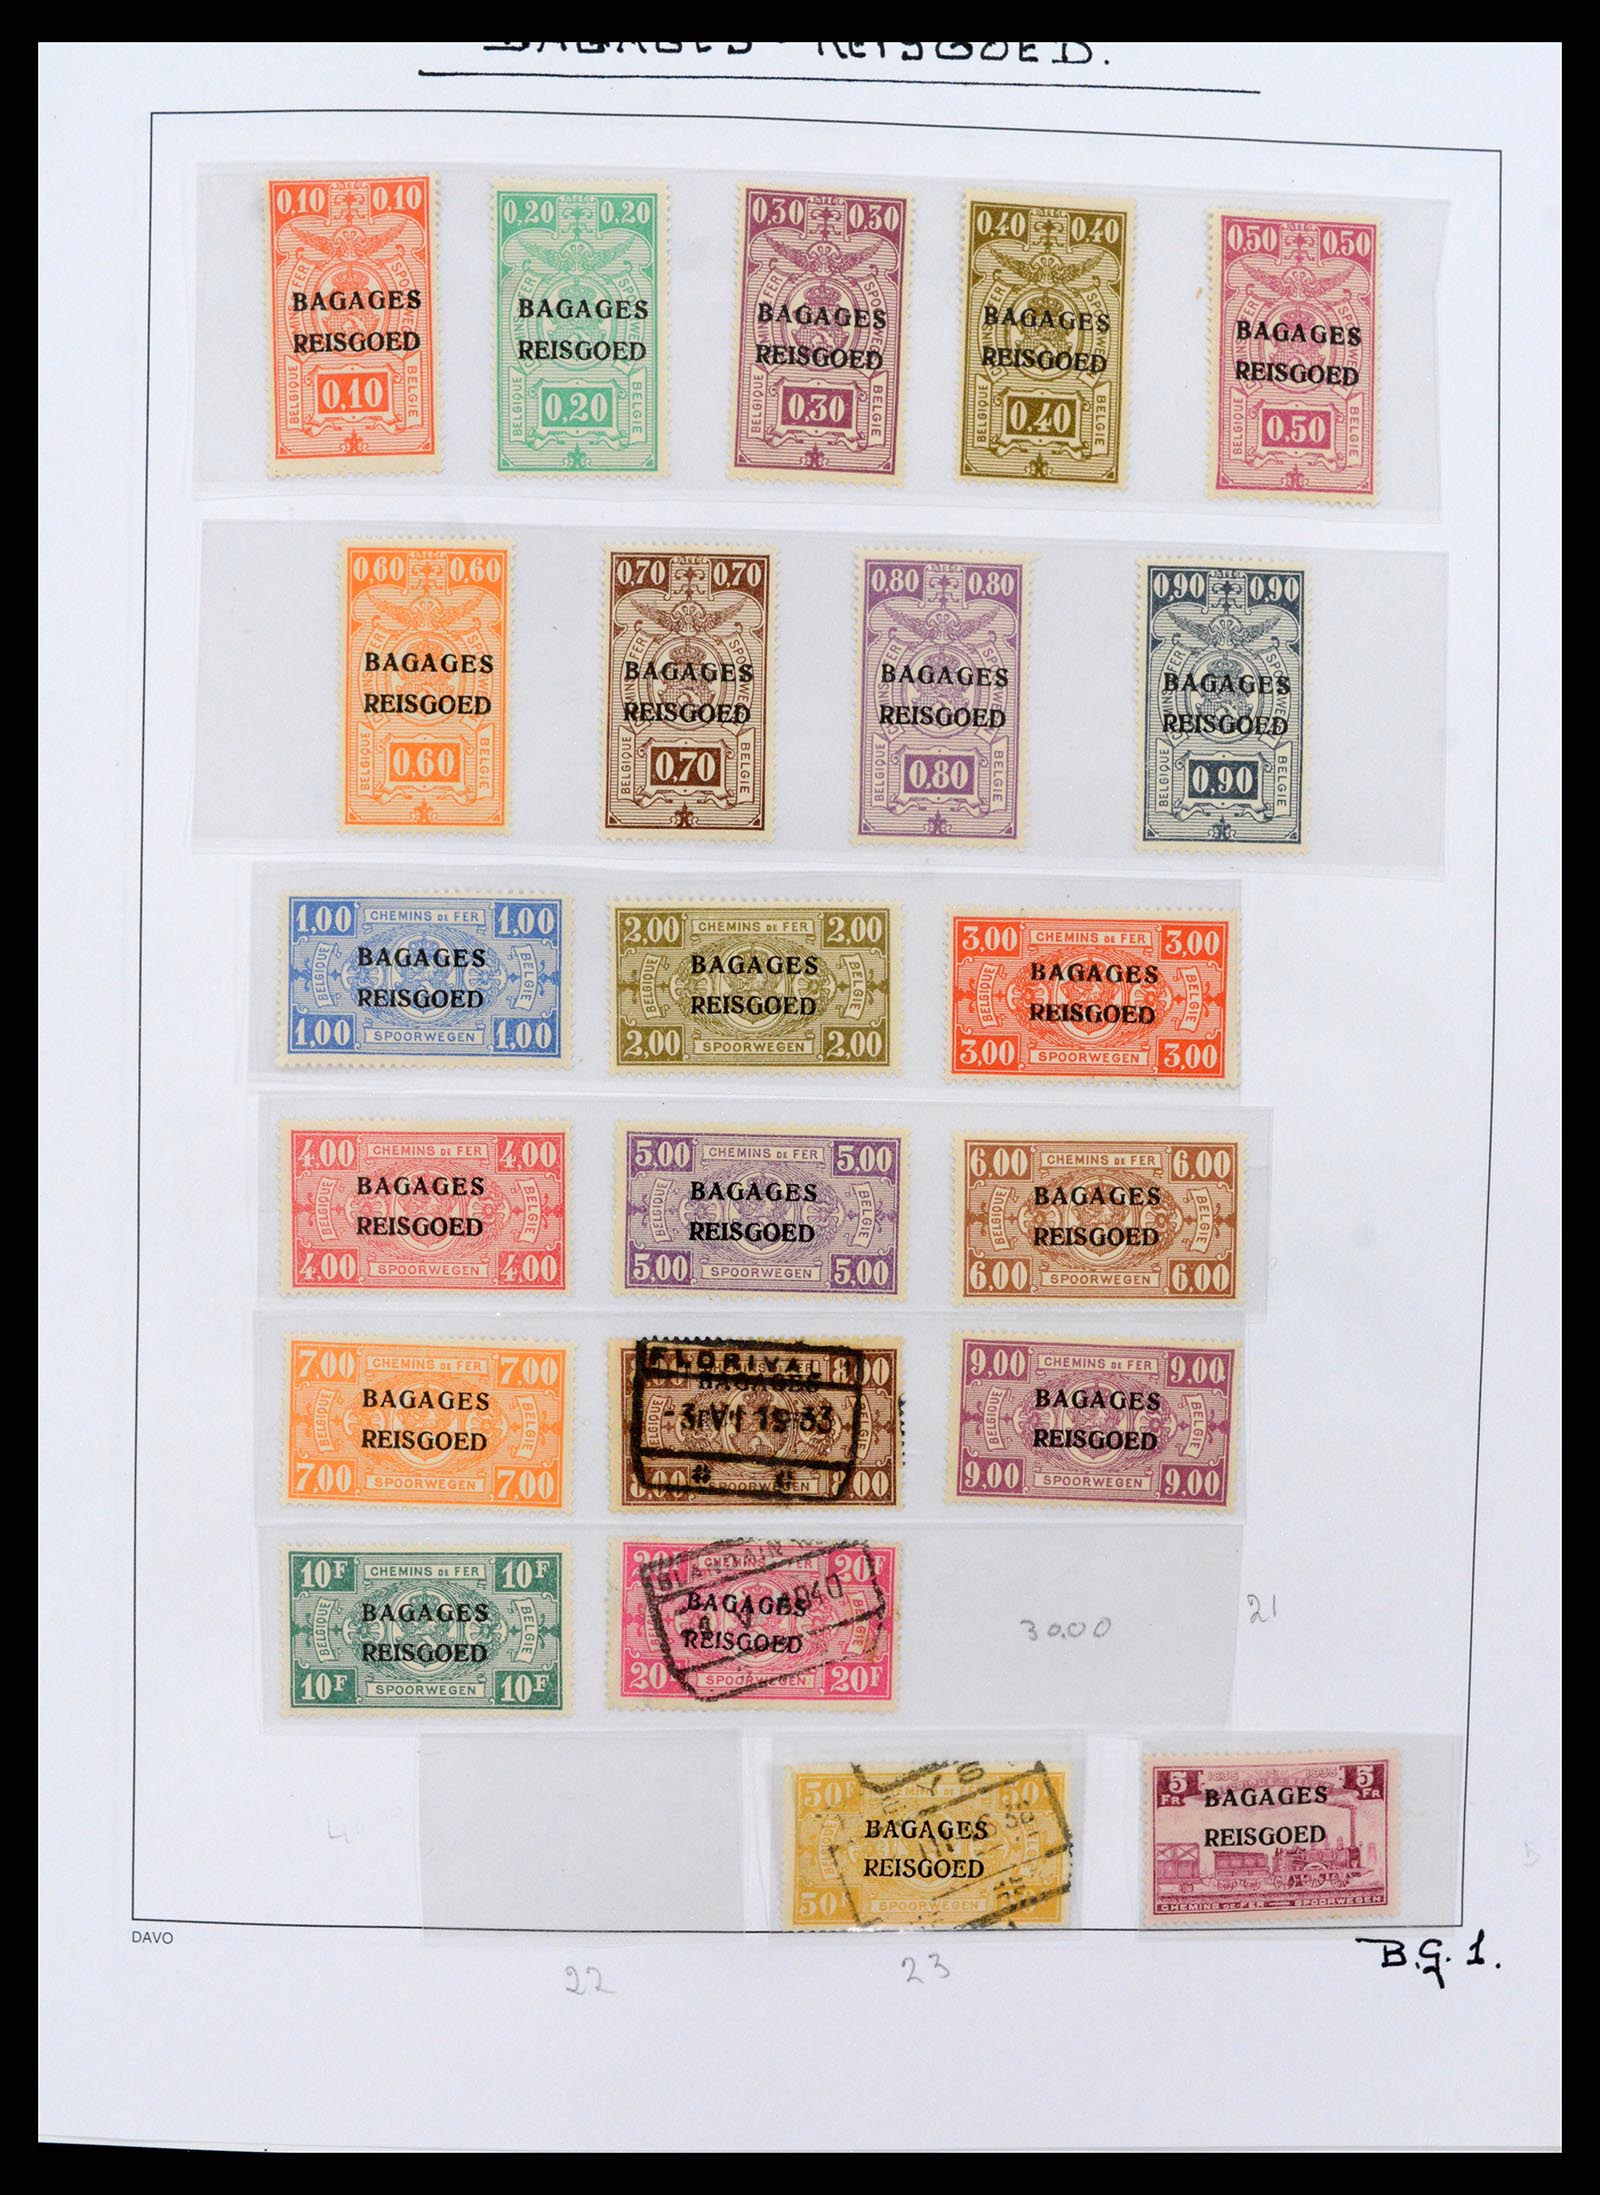 BAGAGES - REISGOED.
0,10 0,10
CHEMINS DE FER SPOORWEGEN
BAGAGES
REISGOED
BELGIQUE 0,10 BELGIE
0,20 0,20
BAGAGES
REISGOED
BELGIQUE 0,20 BELGIE
0,30 0,30
BAGAGES
REISGOED
BELGIQUE 0,30 BELGIE
0,40 0,40
BAGAGES
REISGOED
BELGIQUE 0,40 BELGIE
0,50 0,50
BAGAGES
REISGOED
BELGIQUE 0,50 BELGIE
0,60 0,60
BAGAGES
REISGOED
BELGIQUE 0,60 BELGIE
0,70 0,70
BAGAGES
REISGOED
BELGIQUE 0,70 BELGIE
0,80 0,80
BAGAGES
REISGOED
BELGIQUE 0,80 BELGIE
0,90 0,90
BAGAGES
REISGOED
BELGIQUE 0,90 BELGIE
1,00 CHEMINS DE FER 1,00
BELGIQUE BAGAGES BELGIE
REISGOED
1,00 SPOORWEGEN 1,00
2,00 CHEMINS DE FER 2,00
BELGIQUE BAGAGES BELGIE
REISGOED
2,00 SPOORWEGEN 2,00
3,00 CHEMINS DE FER 3,00
BELGIQUE BAGAGES BELGIE
REISGOED
3,00 SPOORWEGEN 3,00
4,00 CHEMINS DE FER 4,00
BELGIQUE BAGAGES BELGIE
REISGOED
4,00 SPOORWEGEN 4,00
5,00 CHEMINS DE FER 5,00
BELGIQUE BAGAGES BELGIE
REISGOED
5,00 SPOORWEGEN 5,00
6,00 CHEMINS DE FER 6,00
BELGIQUE BAGAGES BELGIE
REISGOED
6,00 SPOORWEGEN 6,00
7,00 CHEMINS DE FER 7,00
BELGIQUE BAGAGES BELGIE
REISGOED
7,00 SPOORWEGEN 7,00
FLORIVAL
CHEMINS DE FER 8,00
BELGIQUE BAGAGES BELGIE
-3.VII 1933
8,00 SPOORWEGEN 8,00
9,00 CHEMINS DE FER 9,00
BELGIQUE BAGAGES BELGIE
REISGOED
9,00 SPOORWEGEN 9,00
10F CHEMINS DE FER 10F
BELGIQUE BAGAGES BELGIE
REISGOED
10F SPOORWEGEN 10F
20F CHEMINS DE FER 20F
BLANDAIN
BAGAGES
1940
REISGOED
20F SPOORWEGEN 20F
30.00
21
50F CHEMINS DE FER 50F
BAGAGES
REISGOED
50F SPOORWEGEN 50F
5 FR 1835 1935 5 FR
BAGAGES
REISGOED
CHEMINS DE FER SPOORWEGEN
5
DAVO
22
23
B.G. 1.